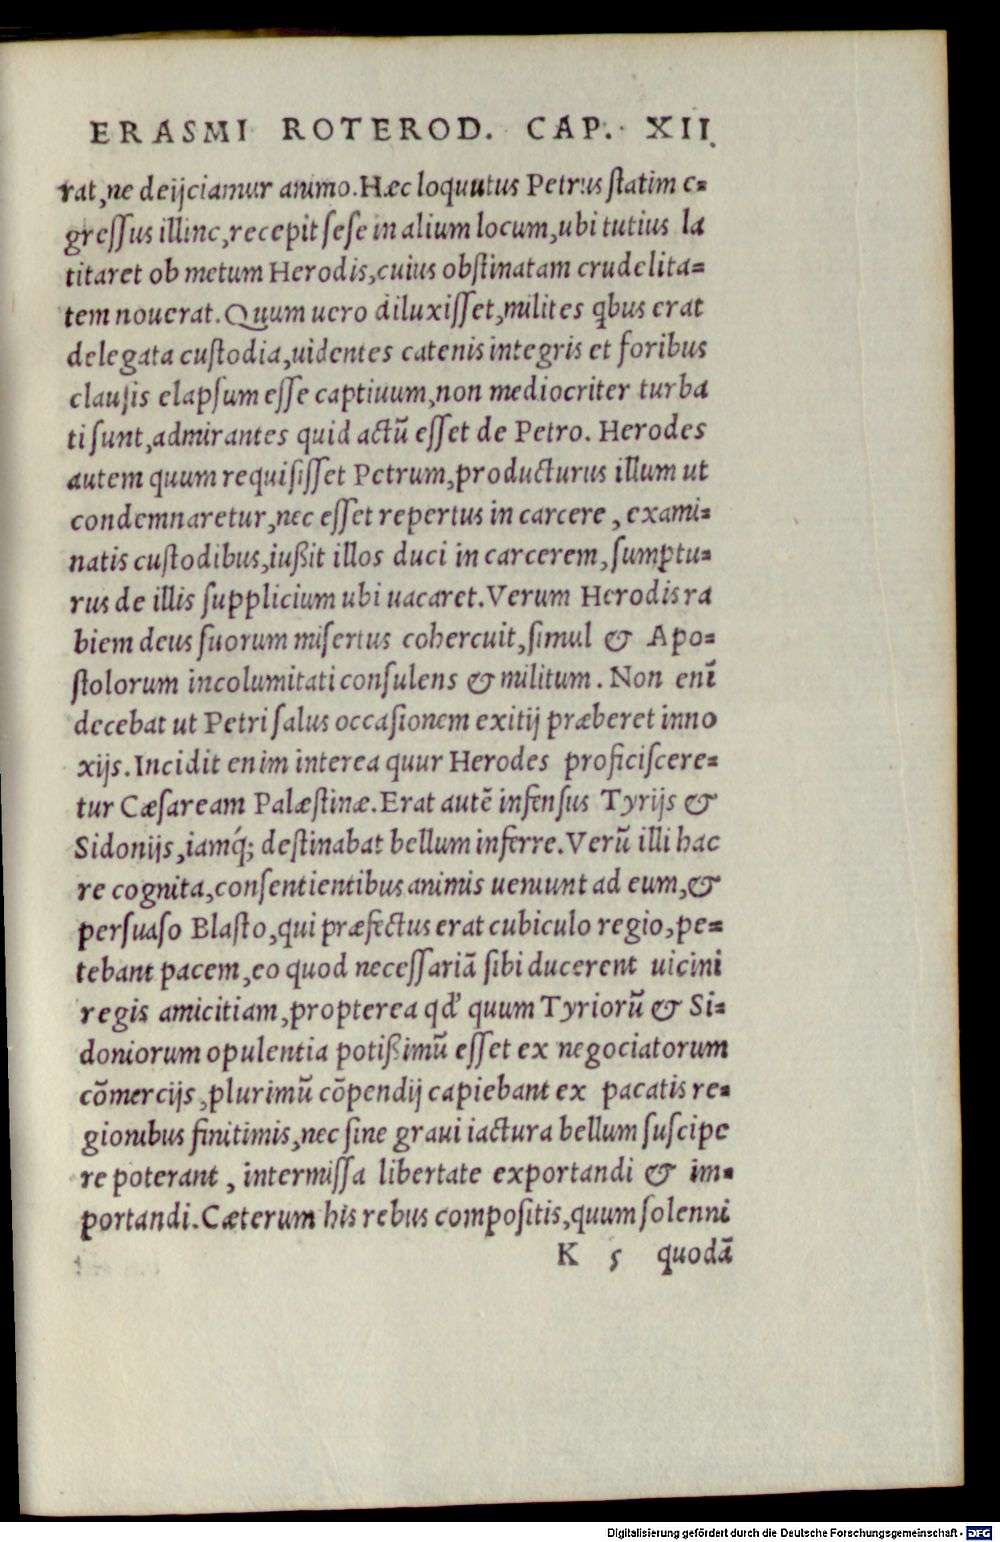 ERASMI ROTEROD. CAP. XII.
rat,ne deijciamur animo.Hæc loquutus Petrus ſtatim e-
greſſus illinc,recepit ſeſe in alium locum,ubi tutius la
titaret ob metum Herodis,cuius obſtinatam crudelita-
tem nouerat.Quum uero diluxiſſet,milites qbus erat
delegata cuſtodia,uidentes catenis integris et foribus
clauſis elapſum eſſe captiuum,non mediocriter turba
ti ſunt,admirantes quid actū eſſet de Petro. Herodes
autem quum requiſiſſet Petrum,producturus illum ut
condemnaretur,nec eſſet repertus in carcere, exami-
natis cuſtodibus,iußit illos duci in carcerem,ſumptu-
rus de illis ſupplicium ubi uacaret.Verum Herodis ra
biem deus ſuorum miſertus cohercuit,ſimul & Apo-
ſtolorum incolumitati conſulens & militum. Non enī
decebat ut Petri ſalus occaſionem exitij præberet inno
xijs.Incidit enim interea quur Herodes proficiſcere-
tur Cæſaream Palæſtinæ.Erat autē infenſus Tyrijs &
Sidonijs,iamq́; deſtinabat bellum inferre.Verū illi hac
re cognita,conſentientibus animis ueniunt ad eum,&
perſuaſo Blaſto,qui præfectus erat cubiculo regio,pe-
tebant pacem,eo quod neceſſariā ſibi ducerent uicini
regis amicitiam,propterea qd' quum Tyriorū & Si-
doniorum opulentia potißimū eſſet ex negociatorum
cōmercijs,plurimū cōpendij capiebant ex pacatis re-
gionibus finitimis,nec ſine graui iactura bellum ſuſcipe
re poterant, intermiſſa libertate exportandi & im-
portandi.Cæterum his rebus compoſitis,quum ſolenni
K 5 quodā
Digitalisierung gefördert durch die Deutsche Forschungsgemeinschaft - DFG